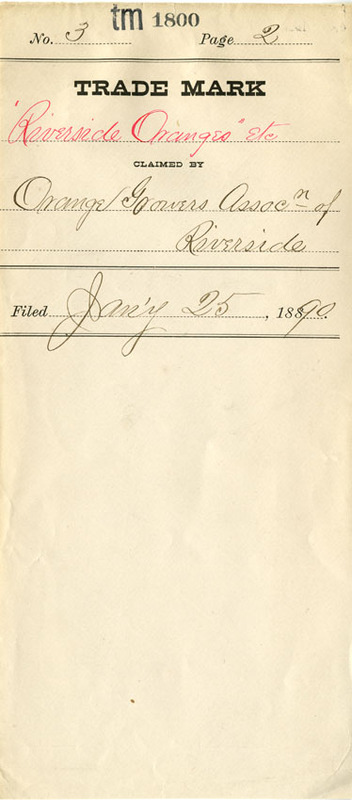 tm 1800
No. 3 Page 2
TRADE MARK
"Riverside Oranges" etc
CLAIMED BY
Orange Growers Assocn of
Riverside
Filed Jan'y 25, 1890.